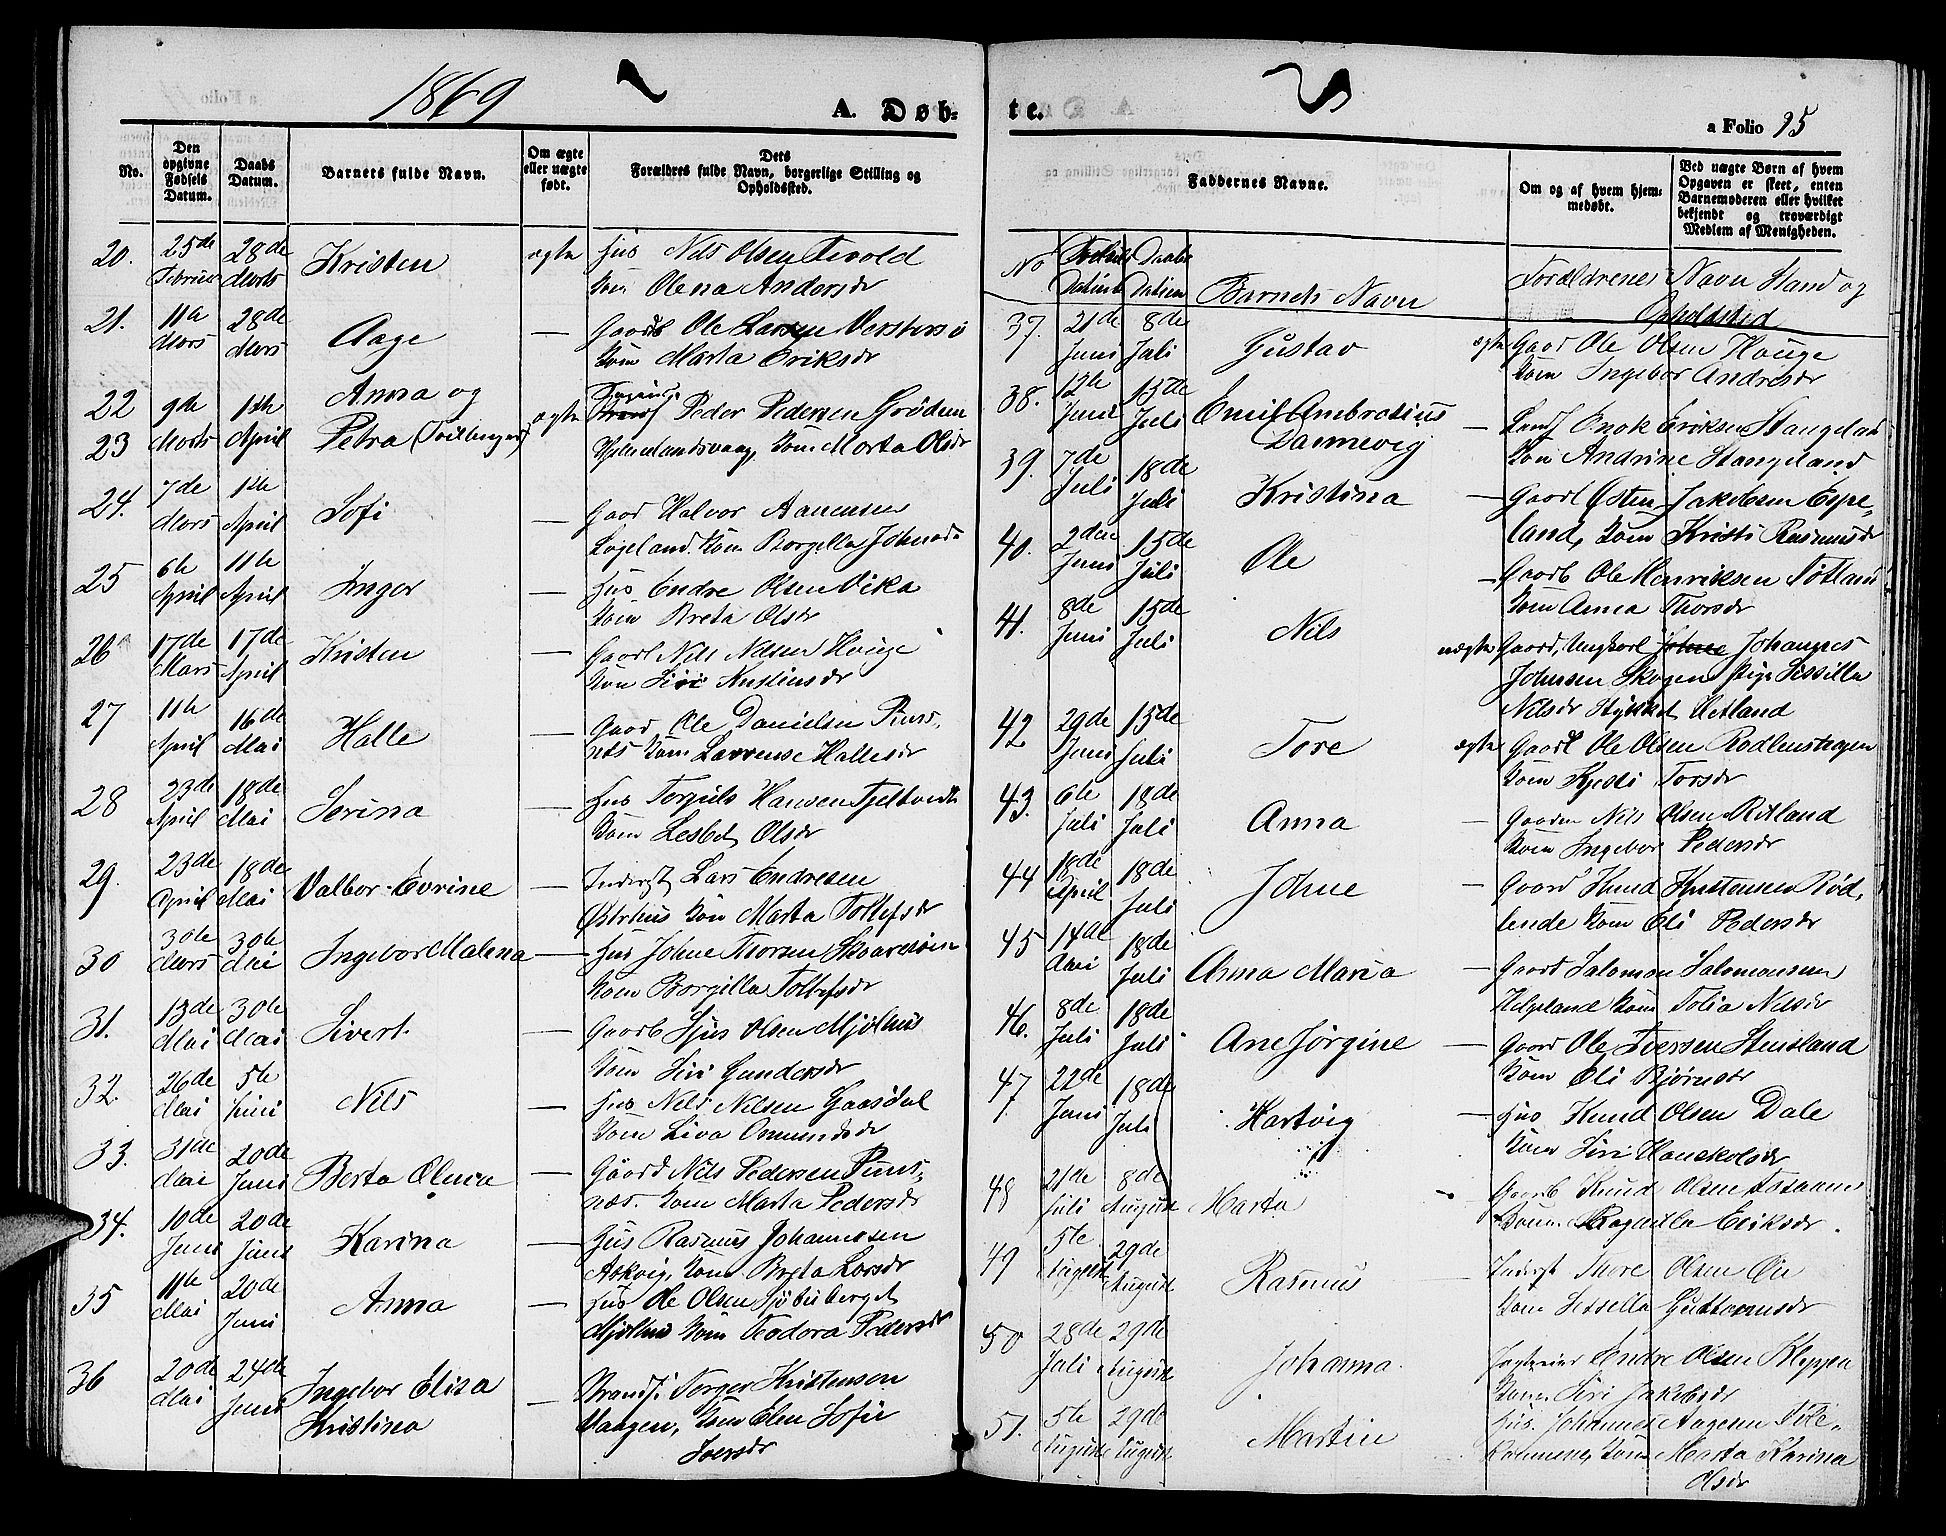 1869
A. Døb-
No.
Den opgivne Fødsels Datum.
Daabs Datum.
Barnets fulde Navn.
Om ægte eller uægte født.
Dets Forældres fulde Navn, borgerlige Stilling og Opholdssted.
20. 25de 28de Kristen ægte Hus Nils Olsen Tvold
Februar Marts Kone Olena Andersdr
21. 11te 28de Aage — Gaard Ole Larsen Vestersø
Mars Mars Kone Marta Eriksdr
22 9de 11te Anna og ægte Peder Pedersen Grødem
23 Marts April Petra (Tvillinger) Hjelmelandsvaag, Kone Marta Olsdr
24. 7de 11te Sofi — Gaard Halvor Aanensen
Mars April Kone Borgilla Johnsd.
25 6te 11te Inger — Hus Endre Olsen Vika
April April Kone Breta Olsdr
26 17de 17de Kristen — Gaard Nils Nilsen Hauge
Mars April Kone Siri
27 11te 16de Halle — Gaard Ole Danielsen Puns-
April Mai næs Kone Lavrense Hallesdr
28 23de 18de Serina — Hus Torgils Hansen
April Mai Kone Lesbet Olsdr
29. 23de 18de Valbor Evrine — Inderst Lars Endresen
April Mai Østrhus Kone Marta Tollefsdr
30 30te 30te Ingebor Malena — Hus Johne Thorsen
Mars Mai Kone Borgilla Tollefsdr
31. 13de 30te Sivert — Gaardb Sjur Olsen Mjølhus
Mai Mai Kone Siri Gundersdr
32. 26de 5te Nils — Hus Nils Nilsen Gaasdal
Mai Juni Kone Liva Osmundsdr
33. 31de 20de Berta Olena — Gaard Nils Pedersen Puns-
Mai Juni næs. Kone Marta Pedersdr
34. 10de 20de Karina — Hus Rasmus Johannesen
Juni Juni Askvig, Kone Breta Larsdr
35 11te 20de Anna — Hus Ole Olsen
Mai Juni Mjølhus Kone Teodora Pedersdr
36 20de 24de Ingebor Elisa — Strands. Torger Kristensen
Mai Juni Kristina Vaagen, Kone Elen Sofie
Iversdr
te.
a Folio 95
Faddernes Navne.
Om og af hvem hjemmedøbt.
Ved uægte Børn af hvem Opgaven er skeet, enten Barnemoderen eller hvilket bekjendt og troværdigt Medlem af Menigheden.
No Fødsels Datum Daabs Datum Barnets Navn Forældrenes Navn Stand og
Opholdsted
37. 21de 8de Gustav ægte Gaard Ole Olsen Hauge
Juni Juli Kone Ingebor Andresdr
38. 12te 15de Emil Ambrosius — Enok Eriksen Stangeland
Juni Juli Dannevig Kone Andrine Stangeland
39. 7de 18de Kristina — Gaard Østen Jakobsen Espe-
Juli Juli land, Kone Kristi Rasmusdr
40. 2den 15de Ole — Gaardb Ole Henriksen
Juni Juli Kone Anna Thorsdr
41. 8de 15de Nils uægte Gaard, Ungkarl Johannes
Juni Juli Johnsen Skogen Pige Sissilla
Nilsdr Ritland
42 29de 15de Tore ægte Gaard Ole Olsen
Juni Juli Kone Torsdr
43. 6te 18de Anna — Gaardm Nils Olsen Ritland
Juli Juli Kone Ingebor Pedersdr
44 18de 18de Johne — Gaard Knud Kristensen Rød-
April Juli lende Kone Eli Pedersdr
45 14de 18de Anna Maria — Gaard Salomon Salomonsen
Mai Juli Helgeland Kone Tolia Nilsdr
46. 8de 18de Ane Jørgine — Gaard Ole Iversen
Juli Juli Kone Eli Bjørnsdr
47 22de 18de Hartvig — Hus Knud Olsen Dale
Juni Juli Kone Siri
48 21de 8de Marta Gaardb Knud Olsen
Juli August Kone Ragnilla Eriksdr
49 5te 29de Rasmus — Inderst Thore Olsen
August August Kone Sessella Guttormsdr
50 28de 29de Johanna Endre Olsen Kleppa
Juli August Kone Siri Jakobsdr
51. 5te 29de Martin Hus. Johannes Aagesen
August August Kone Marta Karina
Olsdr